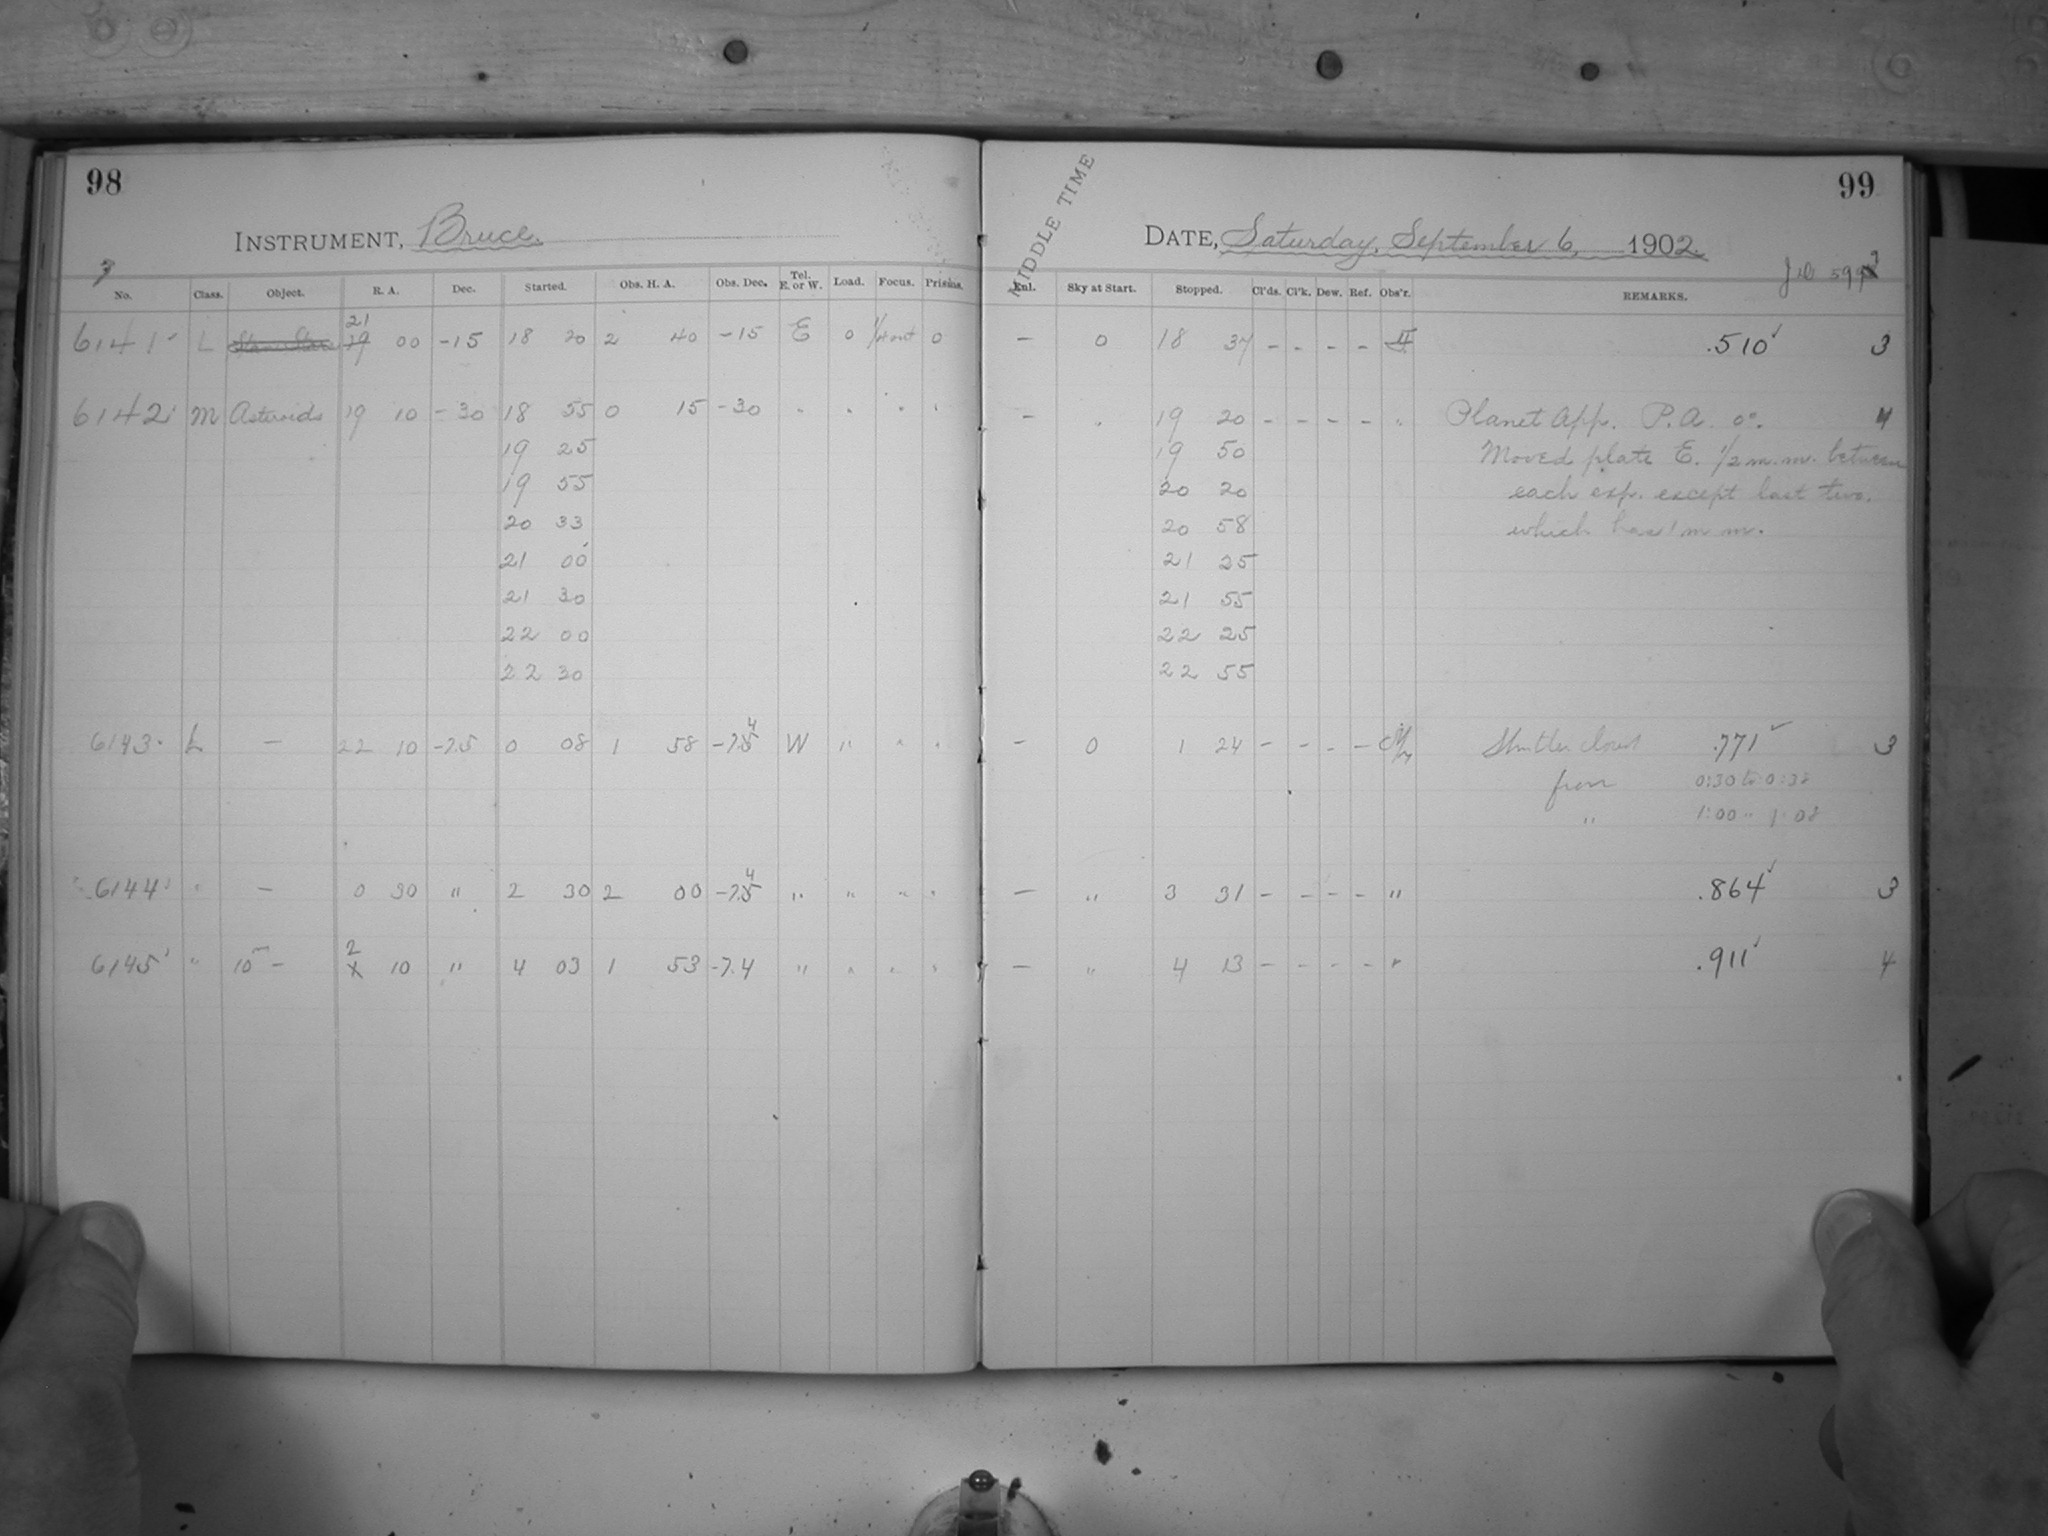 98
INSTRUMENT, Bruce.
No. Class. Object. R. A. Dec. Started. Obs. H. A. Obs. Dec. Tel. E. or W. Load. Focus. Prisms.
21
6141 L 19 00 -15 18 20 2 40 -15 E 0 1/4 out 0
6142 M Asteroids 19 10 -30 18 55 0 15 -30 " " " "
19 25
19 55
20 33
21 00
21 30
22 00
22 30
6143 L — 22 10 -75 0 08 1 58 -75 4 W " " "
6144 " — 0 30 " 2 30 2 00 -75 4 " " " "
2
6145 " 10 — X 10 " 4 03 1 53 -74 " " " "
99
MIDDLE TIME
DATE, Saturday, September 6, 1902
JD 599
Enl. Sky at Start. Stopped. Cl'ds. Cl'k. Dew. Ref. Obs'r. REMARKS.
— 0 18 37 - - - - .510 3
— " 19 20 - - - - " Planet App. P.A. 0°. 4
19 50 Moved plate E. 1/2 m.m. between
20 20 each exp. except last two.
20 58 which has 1 m m.
21 25
21 55
22 25
22 55
— 0 1 24 - - - - Shutter closed .771 3
from 0:30 to 0:38
" 1:00 " 1:08
— " 3 31 - - - - " .864 3
— " 4 13 - - - - " .911 4